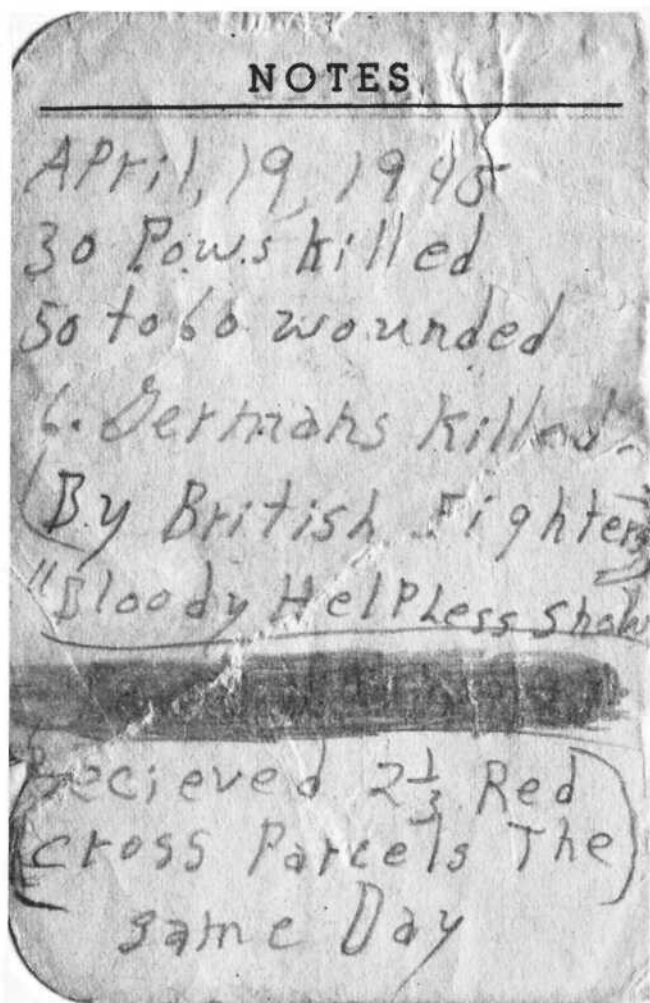 NOTES
APril, 19, 1945
30 P.o.w.s killed
50 to 60 wounded
6. Germans killed.
(By British Fighters)
"Bloody HelPLess Show
Recieved 2 1/3 Red
cross Parcels The
same Day